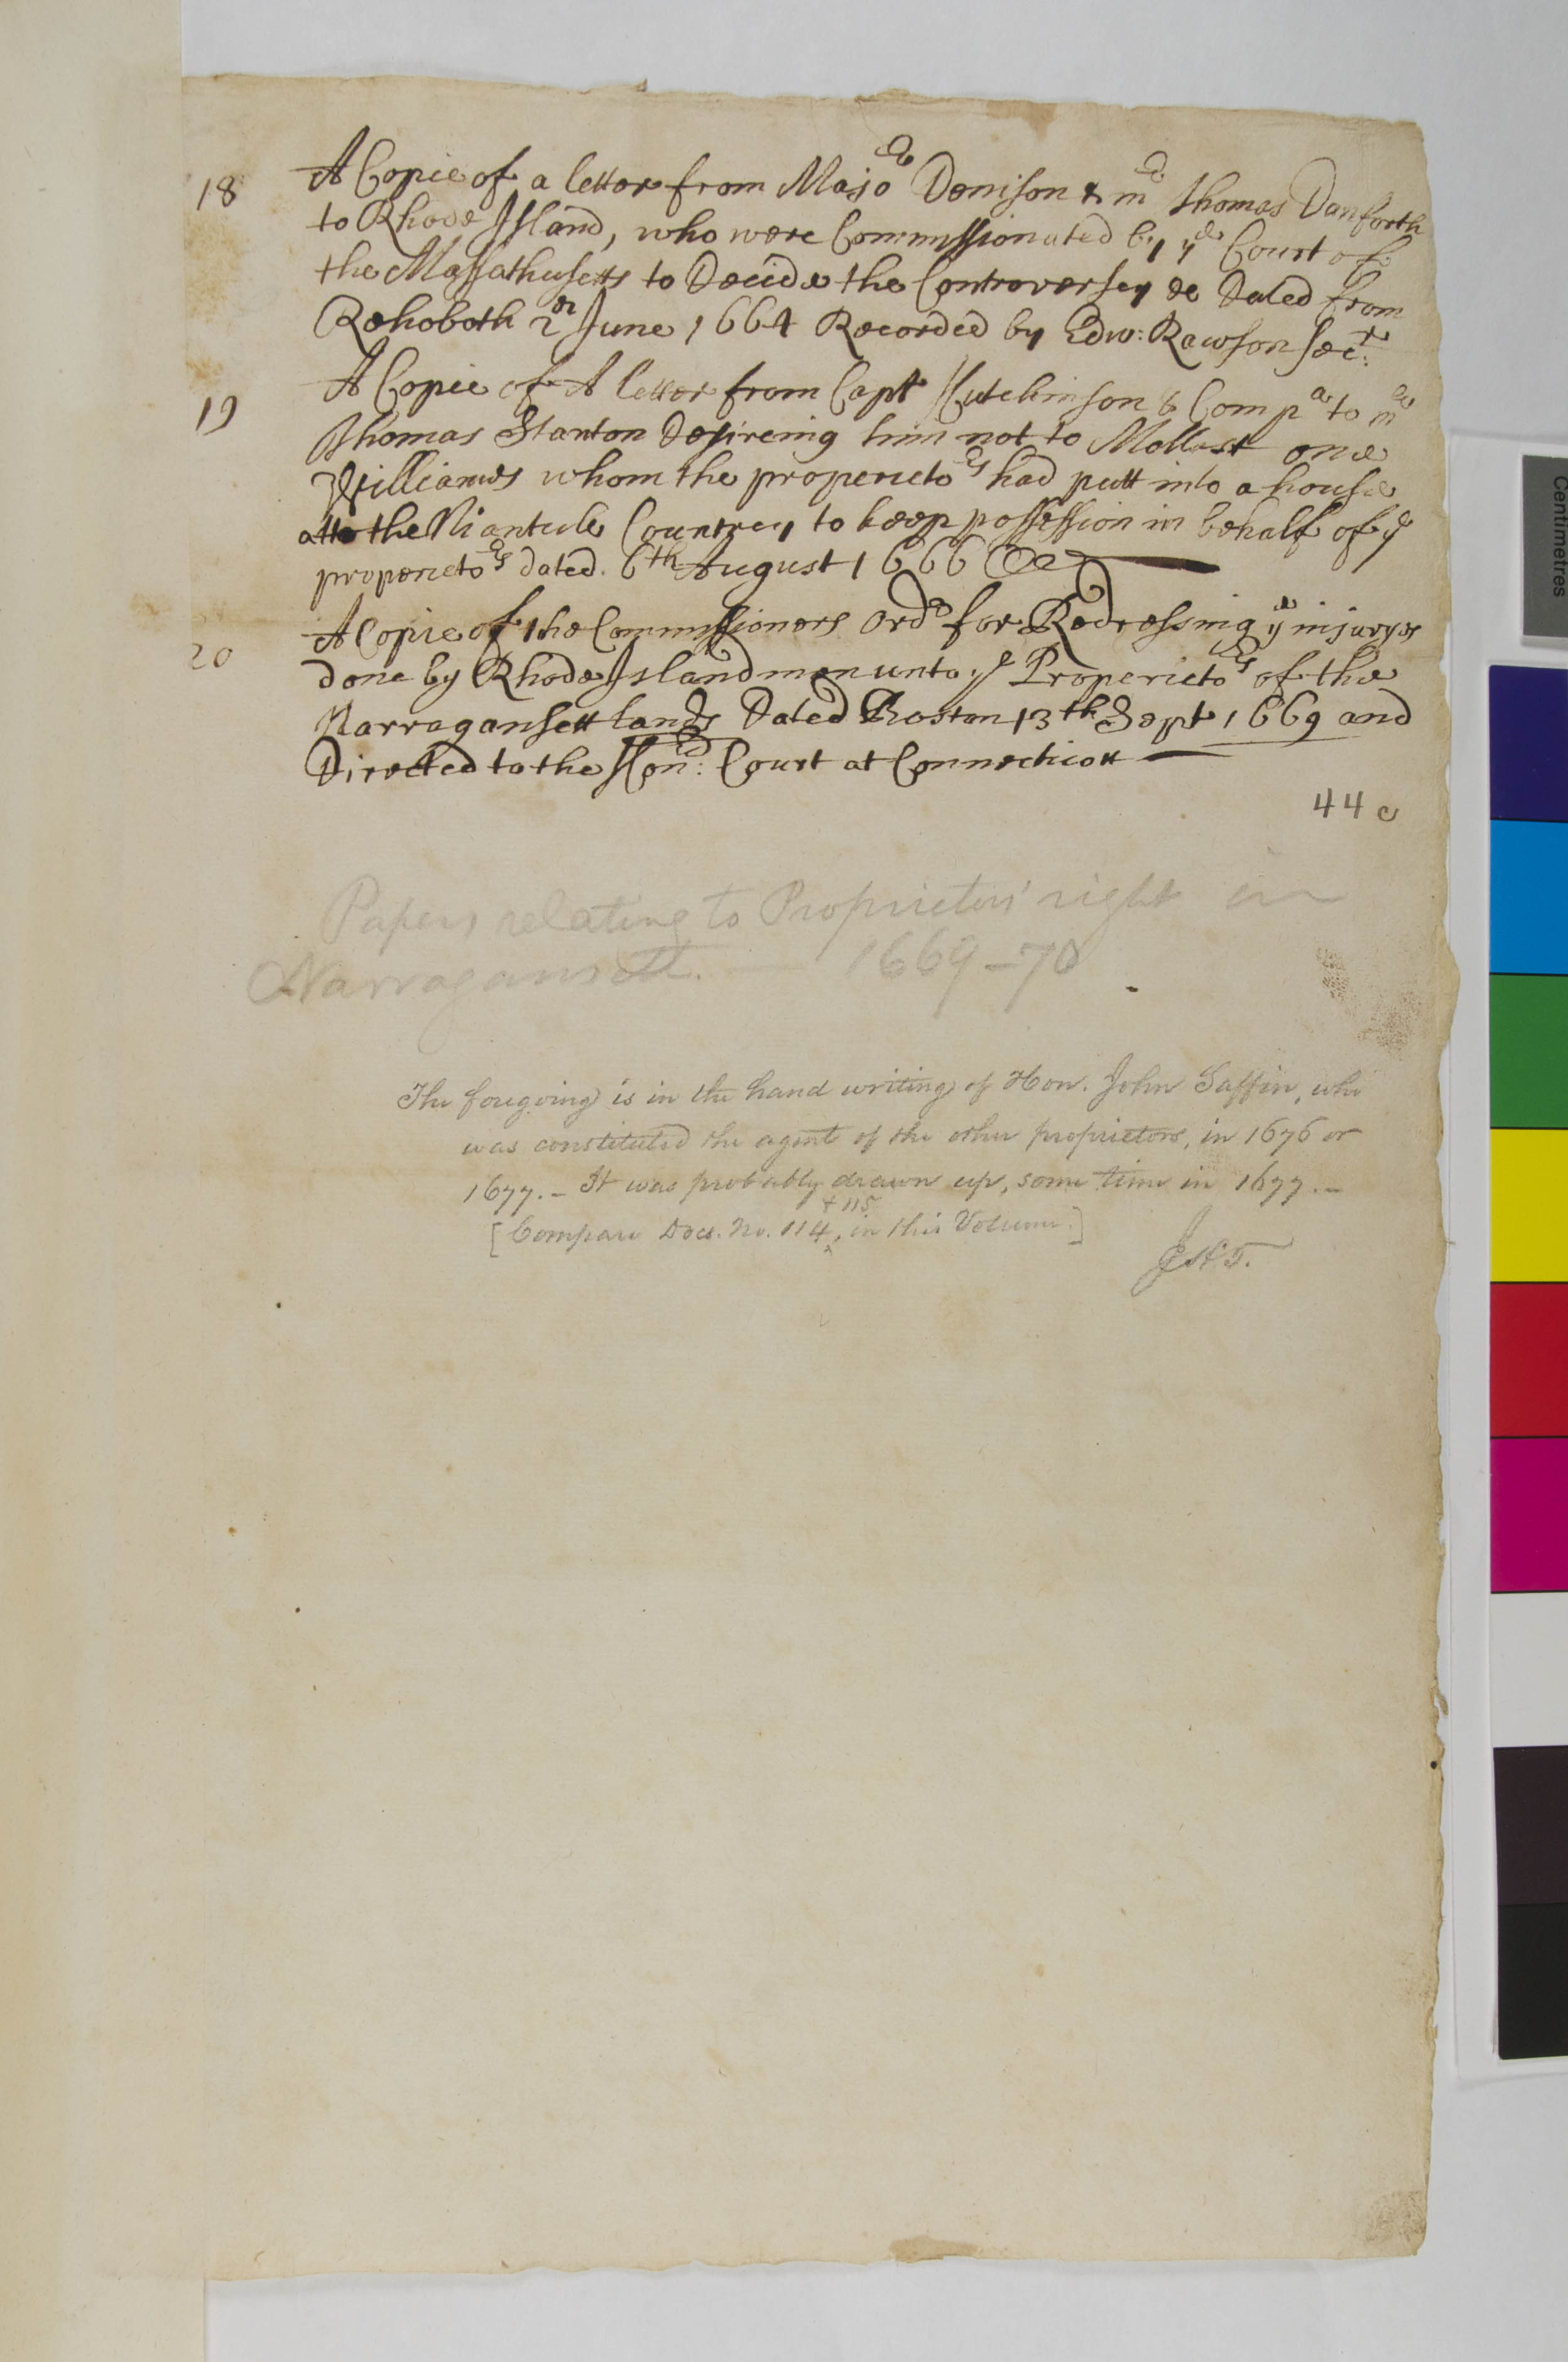 18 A Copie of a letter from Majo<sup>r</sup> Denison & m<sup>r</sup> Thomas Danforth
to Rhode Island, who were Commissionated by y<sup>e</sup> Court of
the Massathusetts to Decide the Controversey &c Dated from
Rehoboth 2<sup>d</sup> June 1664 Recorded by Edw: Rawson Sec<sup>r</sup>:
19 A Copie of A letter from Capt Hutchinson & Comp<sup>a</sup> to m<sup>r</sup>
Thomas Stanton Desireing him not to Mollest one
Williames whom the properieto<sup>rs</sup> had putt into a house
atto the Niantick Countrey to keep possession in behalf of y<sup>e</sup>
properieto<sup>rs</sup> dated. 6<sup>th</sup> August 1666 &c
20 A Copie of the Commissioners Ord<sup>r</sup> for Redressing y<sup>e</sup> injuryes
done by Rhode Island men unto y<sup>e</sup> Properieto<sup>rs</sup> of the
Narragansett lands Dated Boston 13<sup>th</sup> Sept 1669 and
Directed to the Hon<sup>rd</sup>: Court at Connecticott
44 c
Papers relating to Proprietors' right in
Narragansett. — 1669–70
The foregoing is in the hand writing of Hon. John Saffin, who
was constituted the agent of the other proprietors, in 1676 or
1677. – It was probably drawn up, some time in 1677. –
[Compare Docs. No. 114 + 115, in this Volume.]
J.H.T.
Centimetres